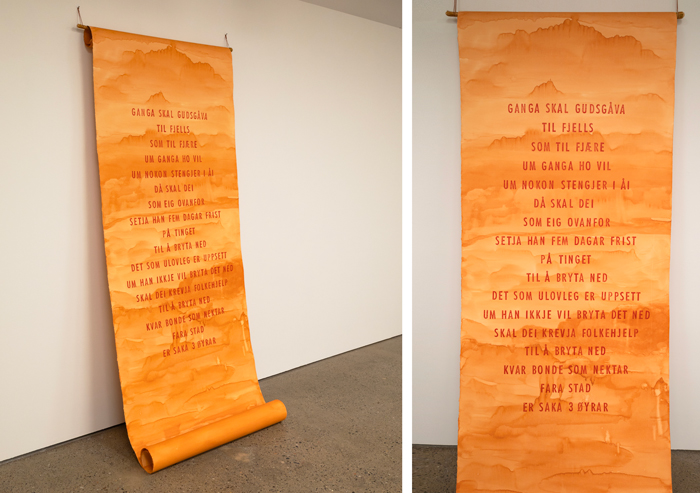 GANGA SKAL GUDSGÅVA
TIL FJELLS
SOM TIL FJÆRE
UM GANGA HO VIL
UM NOKON STENGJER I ÅI
DÅ SKAL DEI
SOM EIG OVANFOR
SETJA HAN FEM DAGAR FRIST
PÅ TINGET
TIL Å BRYTA NED
DET SOM ULOVLEG ER UPPSETT
UM HAN IKKJE VIL BRYTA DET NED
SKAL DEI KREVJA FOLKEHJELP
TIL Å BRYTA NED
KVAR BONDE SOM NEKTAR
FARA STAD
ER SAKA 3 ØYRAR
GANGA SKAL GUDSGÅVA
TIL FJELLS
SOM TIL FJÆRE
UM GANGA HO VIL
UM NOKON STENGJER I ÅI
DÅ SKAL DEI
SOM EIG OVANFOR
SETJA HAN FEM DAGAR FRIST
PÅ TINGET
TIL Å BRYTA NED
DET SOM ULOVLEG ER UPPSETT
UM HAN IKKJE VIL BRYTA DET NED
SKAL DEI KREVJA FOLKEHJELP
TIL Å BRYTA NED
KVAR BONDE SOM NEKTAR
FARA STAD
ER SAKA 3 ØYRAR